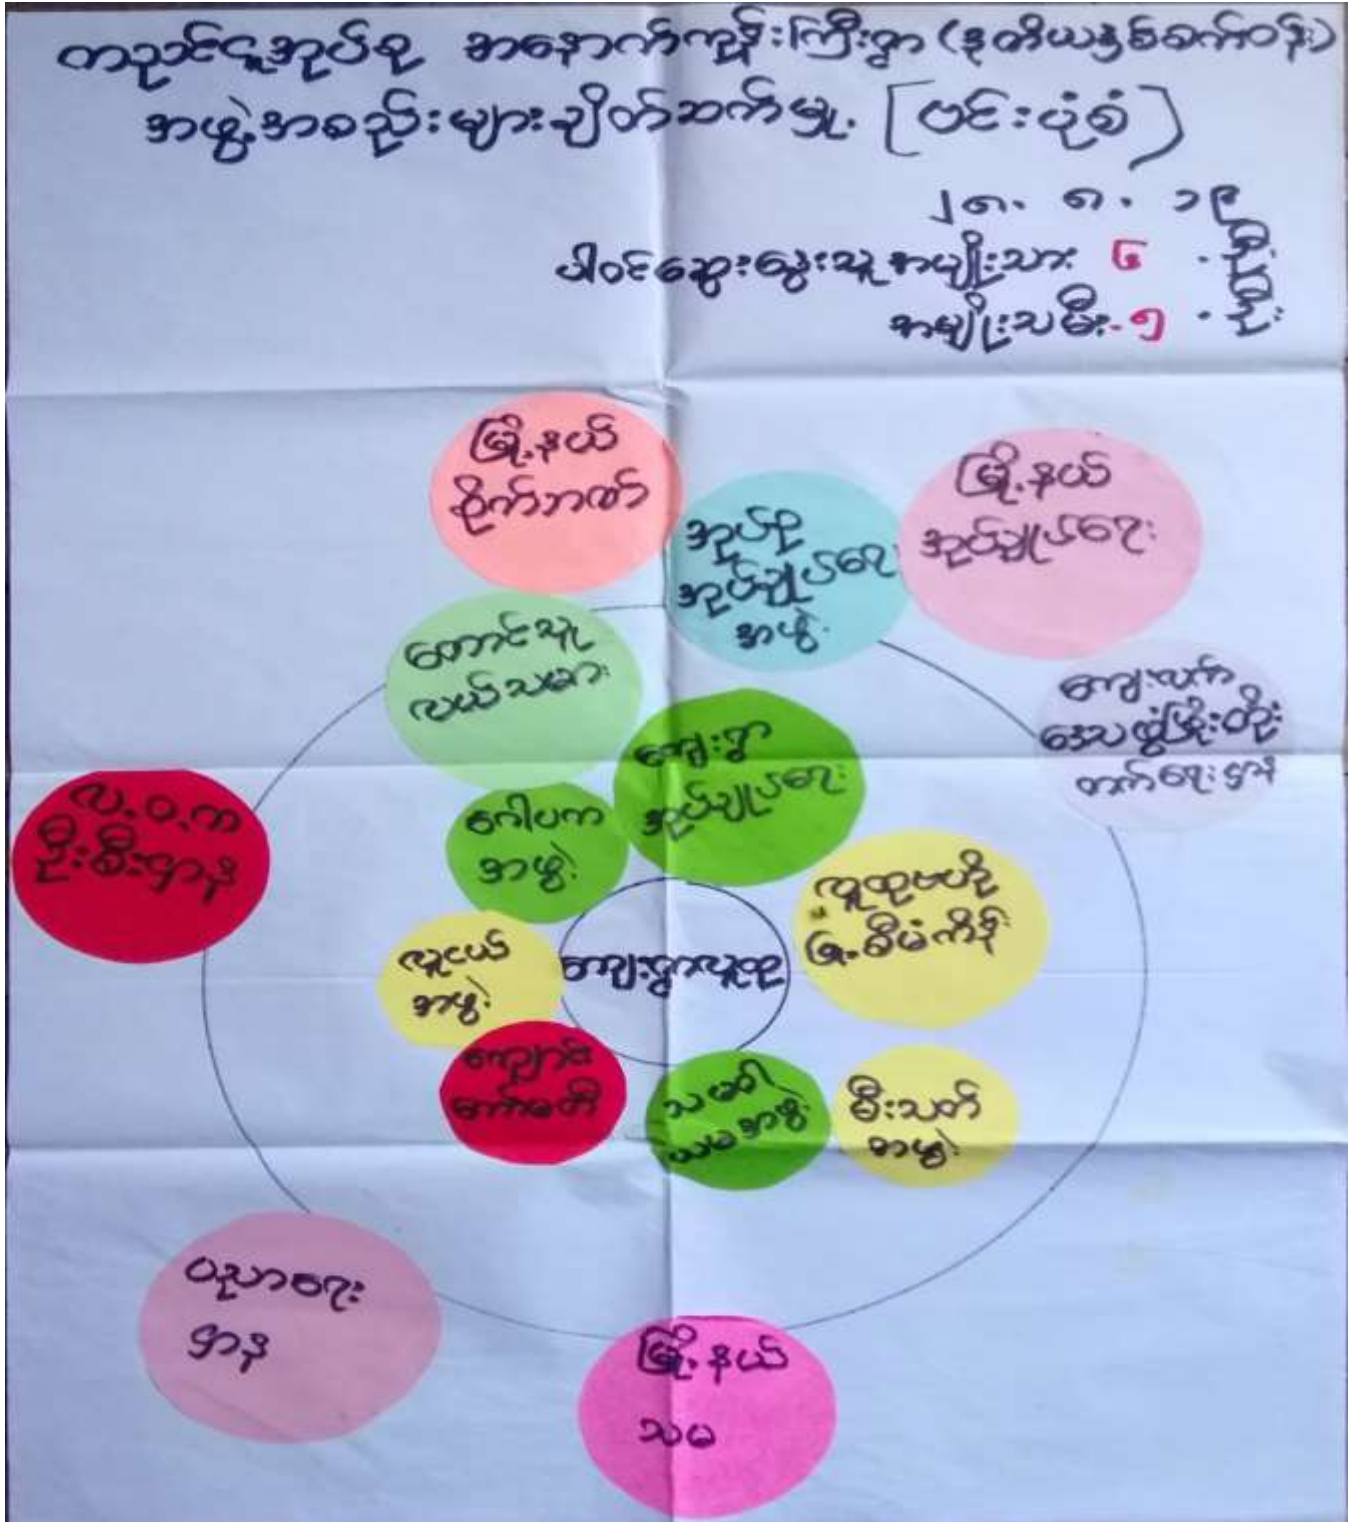 တညင်ငူအုပ်စု အနောက်ကျွန်းကြီးရွာ (ဒုတိယနှစ်စက်ဝန်း)
အဖွဲ့အစည်းများချိတ်ဆက်မှု. [ဗင်းပုံစံ)
၂၈. ၈. ၁၉
ပါဝင်ဆွေးနွေးသူအမျိုးသား ၆ . ဦး
အမျိုးသမီး.၅ . ဦး
မြို့နယ်
စိုက်ဘဏ်
အုပ်စု
အုပ်ချုပ်ရေး
အဖွဲ့
မြို့နယ်
အုပ်ချုပ်ရေး
တောင်သူ
လယ်သမား
ကျေးလက်
ဒေသဖွံ့ဖြိုးတိုး
တက်ရေးဌာန
ကျေးရွာ
အုပ်ချုပ်ရေး
လ.ဝ.က
ဦးစီးဌာန
ဂေါပက
အဖွဲ့
လူထုဗဟိုပြု
စီမံကိန်း
လူငယ်
အဖွဲ့
ကျေးရွာလူထု
ကျောင်း
ကော်မတီ
သမဝါ
ယမအဖွဲ့
မီးသတ်
အဖွဲ့
ပညာရေး
ဌာန
မြို့နယ်
သမ